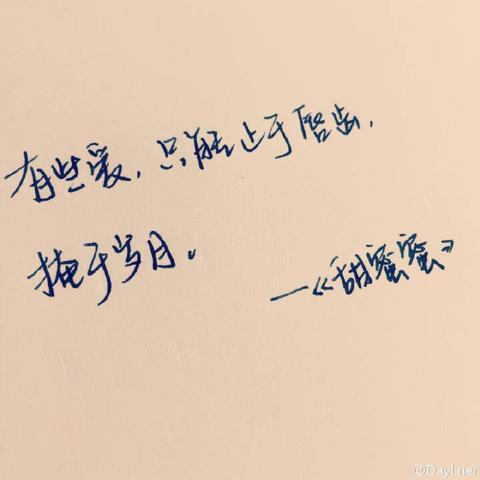 有些爱，只能止于唇齿，
掩于岁月。
—《甜蜜蜜》
@Dayl.ner